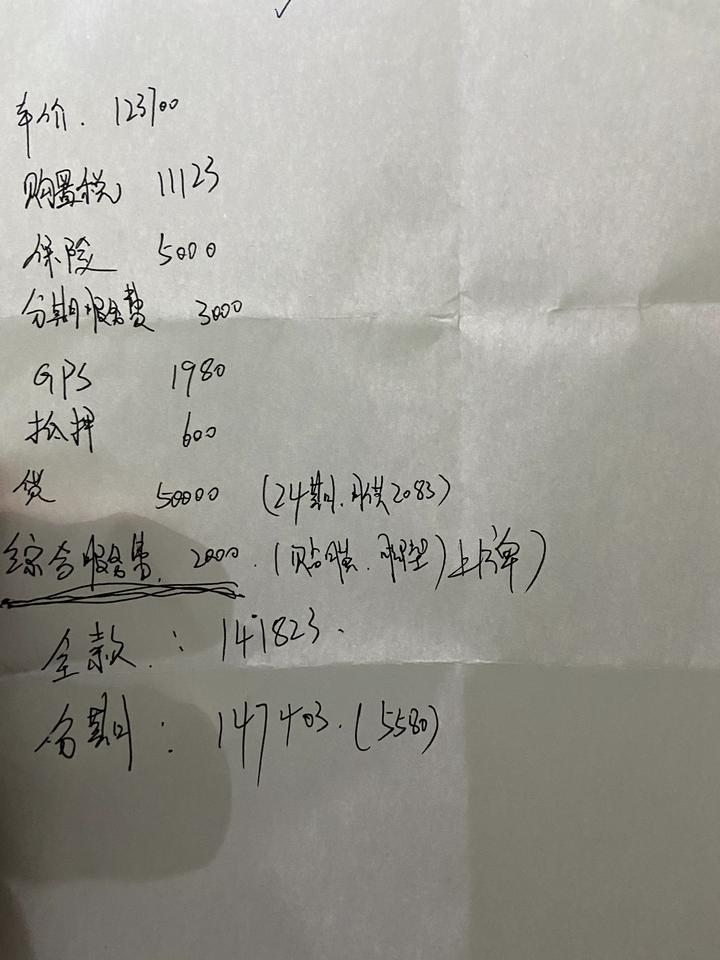 车价. 123700
购置税 11123
保险 5000
分期服务费 3000
GPS 1980
抵押 600
贷 50000 (24期.月供2083)
综合服务费. 2000. (贴膜.脚垫)上牌)
全款: 141823.
分期: 147403.(5580)